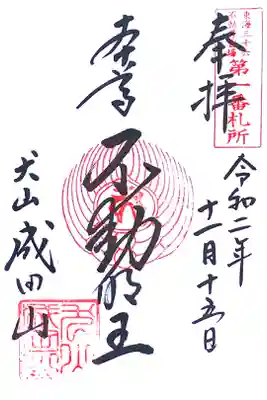 奉拝
東海三十六
不動尊霊場
第一番札所
令和二年
十一月十五日
本尊
不動明王
犬山成田山